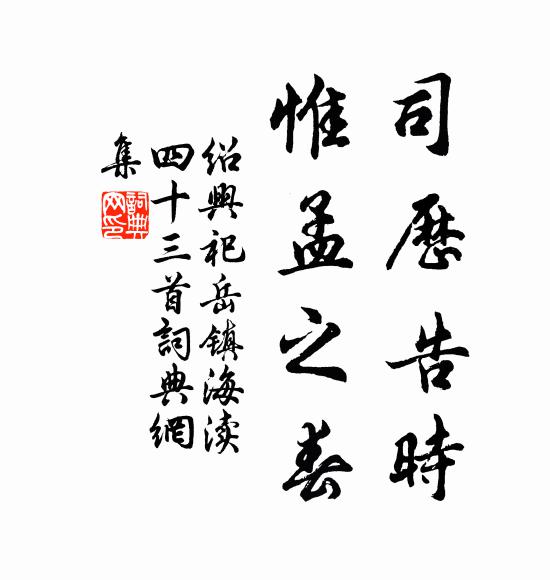 司歷告時
惟孟之春
紹興祀岳鎮海渎
四十三首詞典網
集
詞典網印